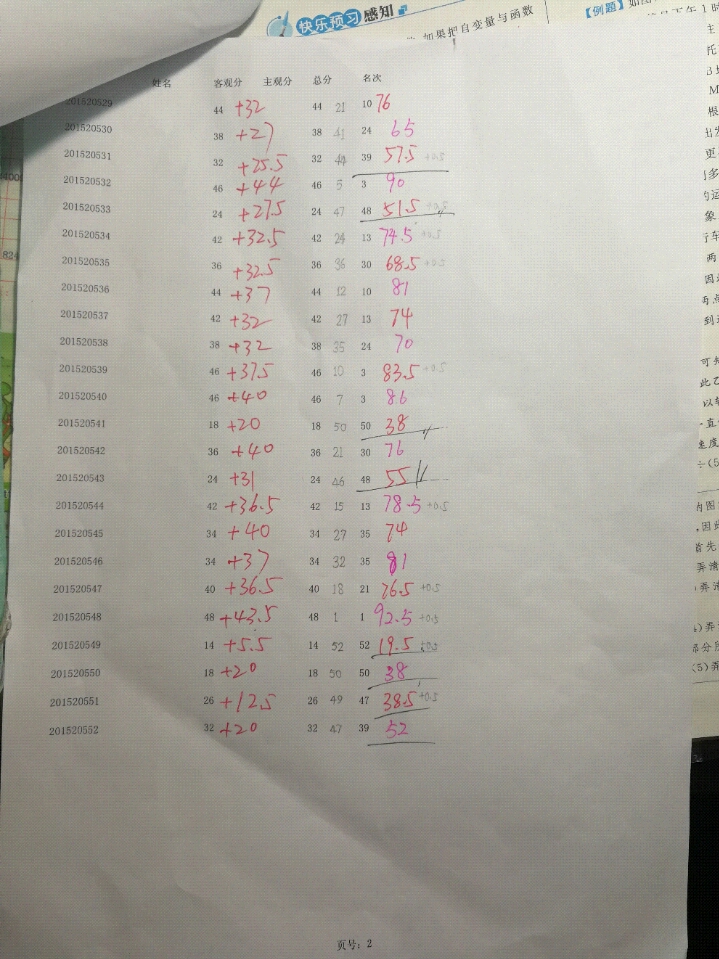 快乐预习 感知
如果把自变量与函数
【例题】
姓名 客观分 主观分 总分 名次
201520529 44 +32 44 21 10 76
201520530 38 +27 38 41 24 65
201520531 32 +25.5 32 44 39 57.5 +0.5
201520532 46 +44 46 5 3 90
201520533 24 +27.5 24 47 48 51.5
201520534 42 +32.5 42 24 13 74.5
201520535 36 +32.5 36 36 30 68.5 +0.5
201520536 44 +37 44 12 10 81
201520537 42 +32 42 27 13 74
201520538 38 +32 38 35 24 70
201520539 46 +37.5 46 10 3 83.5 +0.5
201520540 46 +40 46 7 3 86
201520541 18 +20 18 50 50 38
201520542 36 +40 36 21 30 76
201520543 24 +31 24 46 48 55
201520544 42 +36.5 42 15 13 78.5 +0.5
201520545 34 +40 34 27 35 74
201520546 34 +37 34 32 35 81
201520547 40 +36.5 40 18 21 76.5 +0.5
201520548 48 +43.5 48 1 1 92.5 +0.5
201520549 14 +5.5 14 52 52 19.5
201520550 18 +20 18 50 50 38
201520551 26 +12.5 26 49 47 38.5 +0.5
201520552 32 +20 32 47 39 52
页号：2